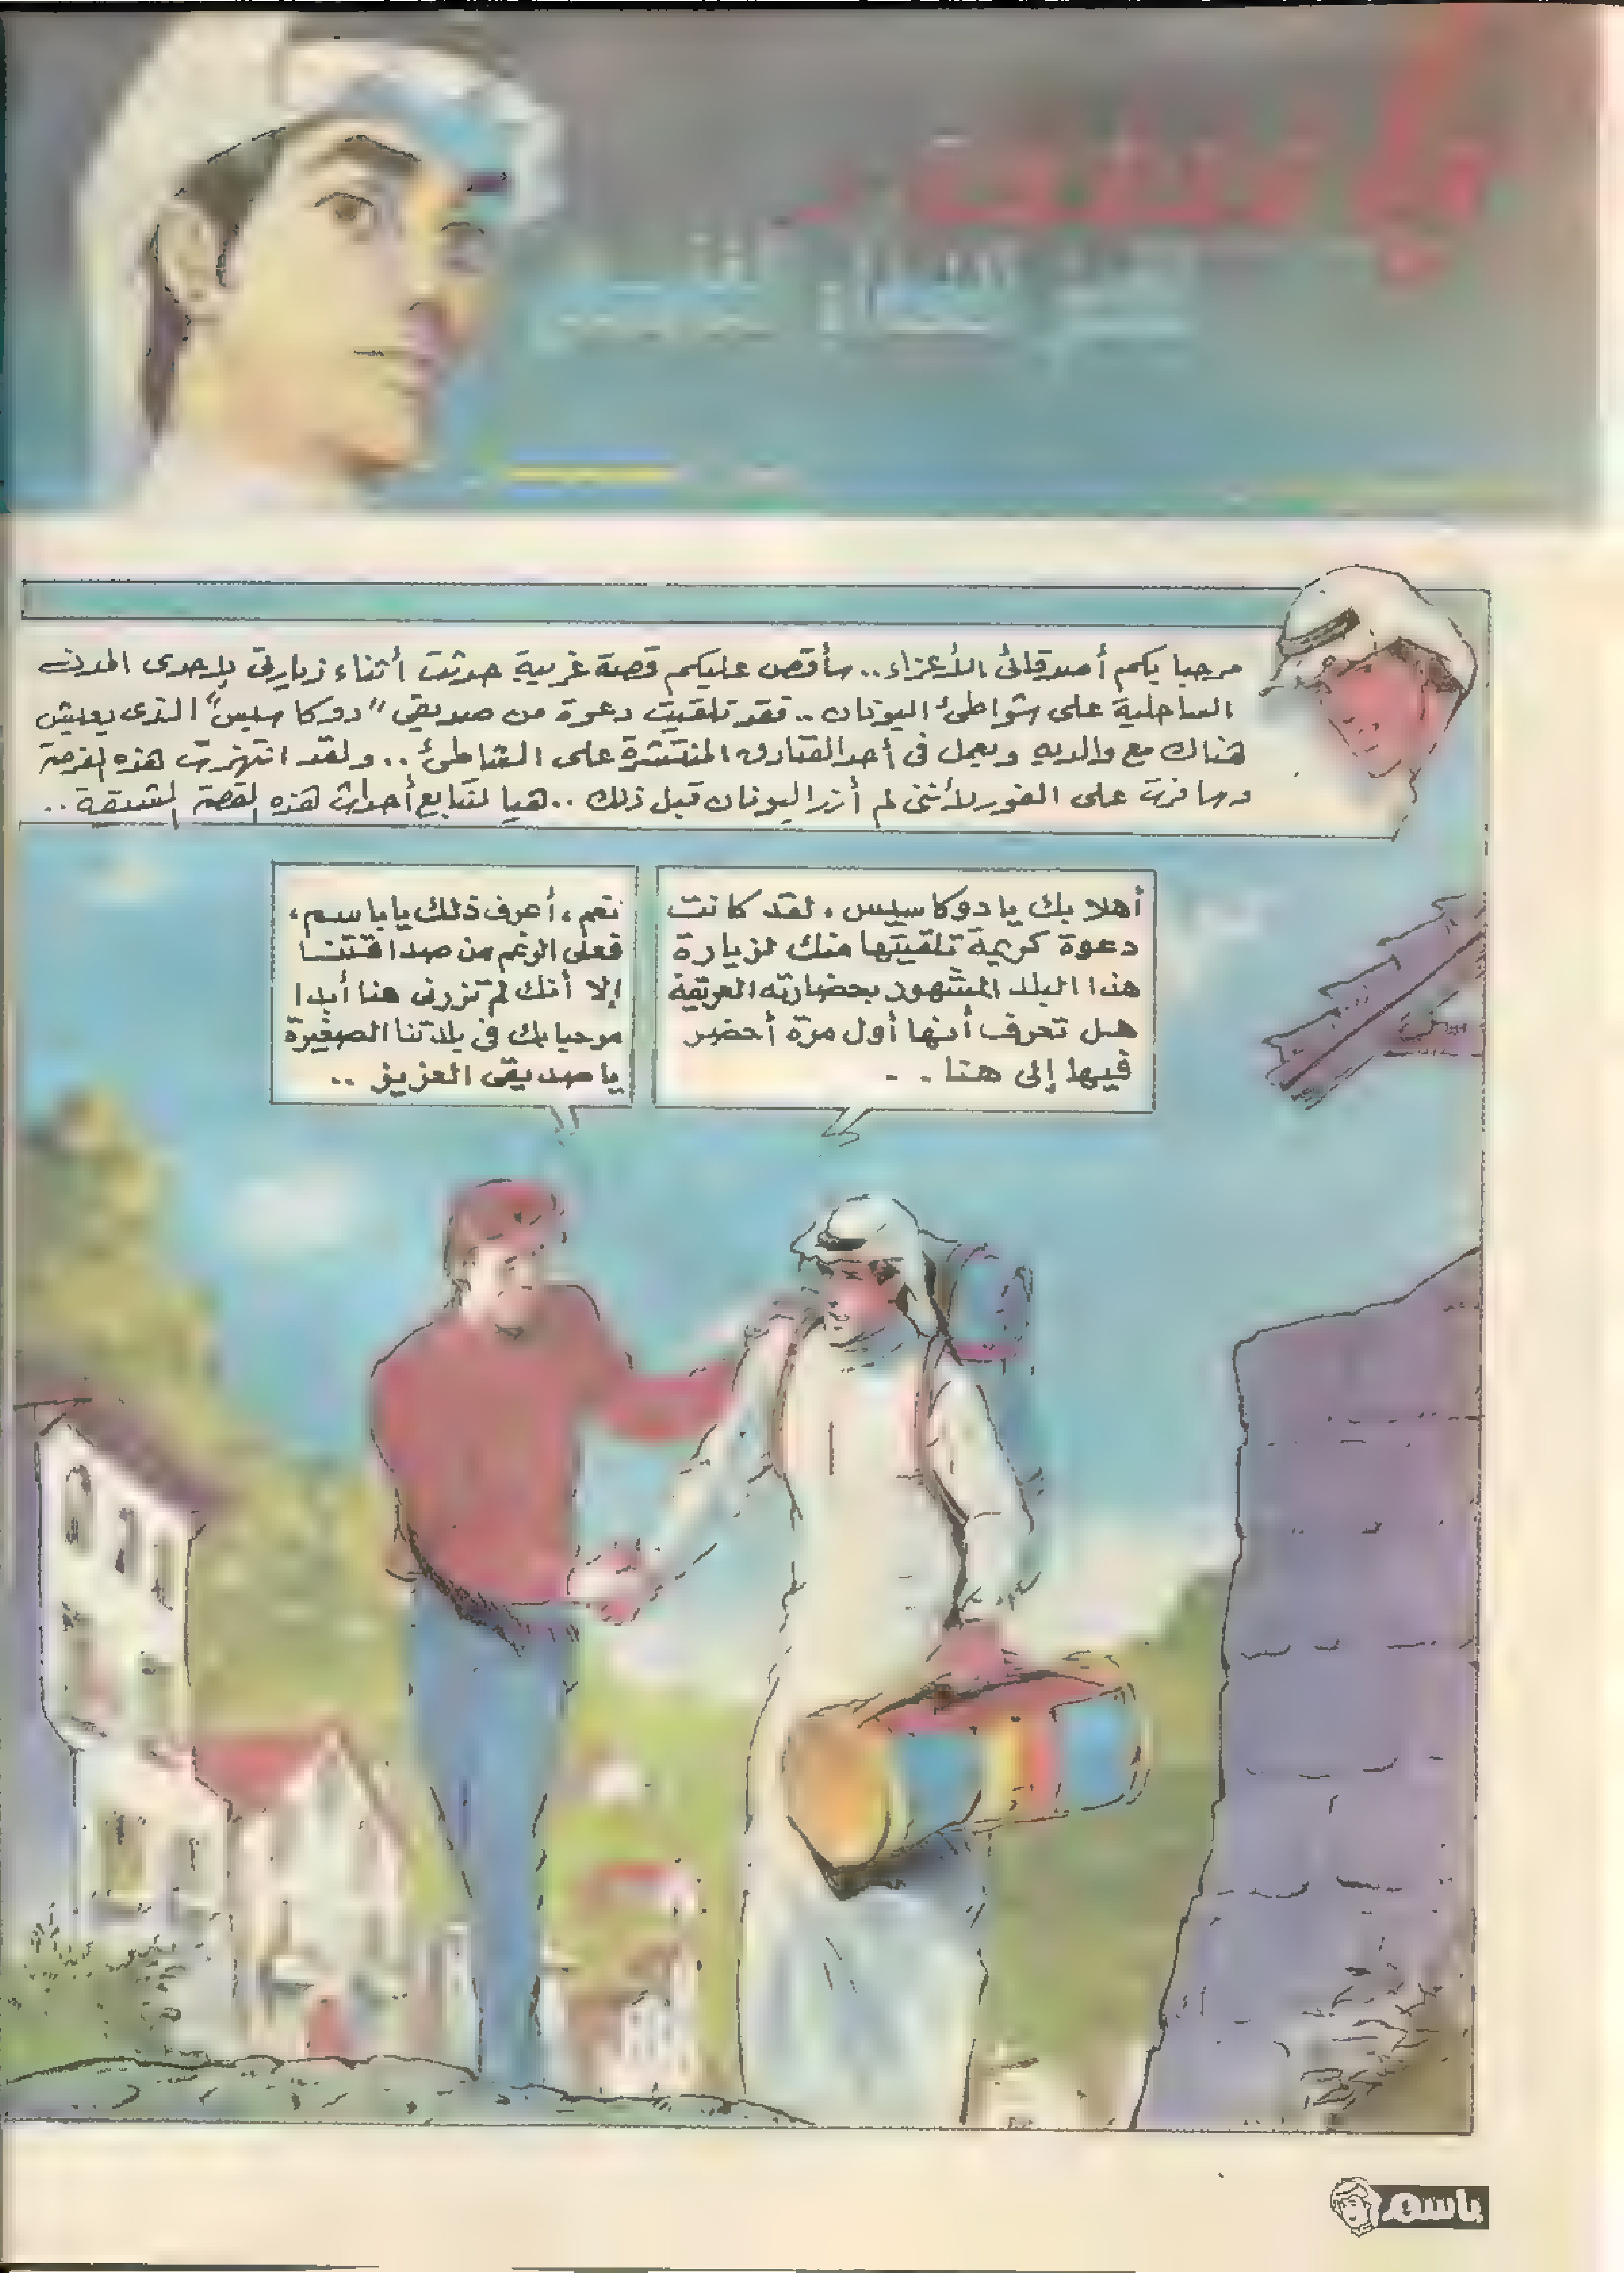 باسم
مرحبا بكم أصدقائى الأعزاء.. سأقص عليكم قصة غريبة حدثت أثناء زيارتى لإحدى المدن
الساحلية على شواطئ اليونان.. فقد تلقيت دعوة من صديقي "دوكاسيس" الذى يعيش
هناك مع والديه ويعمل فى أحد الفنادق المنتشرة على الشاطئ.. ولقد انتهزت هذه الفرصة
وسافرت على الفور لأننى لم أزر اليونان قبل ذلك.. هيا لنتابع أحداث هذه القصة المشوقة..
أهلا بك يا دوكاسيس، لقد كانت
دعوة كريمة تلقيتها منك لزيارة
هذا البلد المشهور بحضارته العريقة
هل تعرف أنها أول مرة أحضر
فيها إلى هنا..
نعم، أعرف ذلك يا باسم،
فعلى الرغم من صداقتنا
إلا أنك لم تزرنى هنا أبدا
مرحبا بك فى بلدتنا الصغيرة
يا صديقى العزيز..
باسم